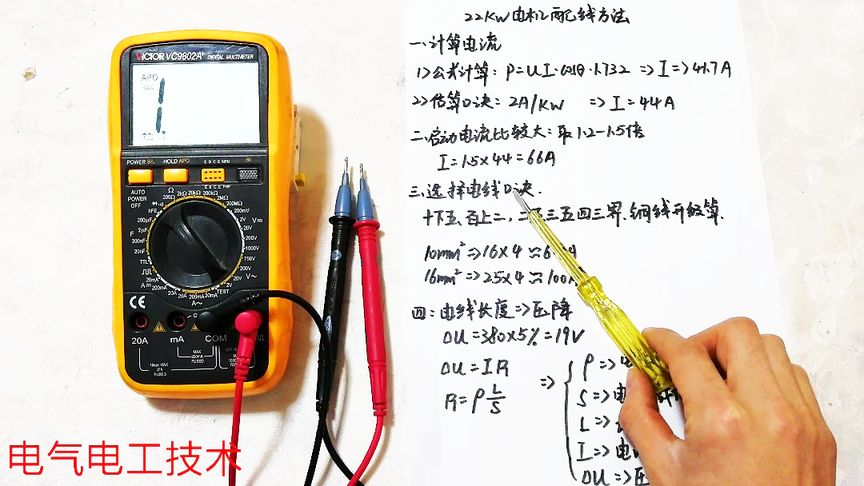 VICTOR VC9802A+
DIGITAL MULTIMETER
APO
1
POWER B/L
HOLD APO
AUTO
POWER
OFF
TEST
20A
mA
COM
CE
电气电工技术
22KW电机配线方法
一、计算电流
1>公式计算: P=UI·cosθ·1.732 => I => 41.7A
2>估算口决: 2A/KW => I=44A
二、启动电流比较大: 取1.2-1.5倍
I=1.5×44=66A
三、选择电线口决.
十下五、百上二, 三五四三界. 铜线升级算.
10mm² => 16×4≈6
16mm² => 25×4≈100
四: 电线长度=>压降
ΔU=380×5%=19V
ΔU=IR
R=ρL/S
=>
ρ=>
S=>电
L=>
I=>电
ΔU=>压